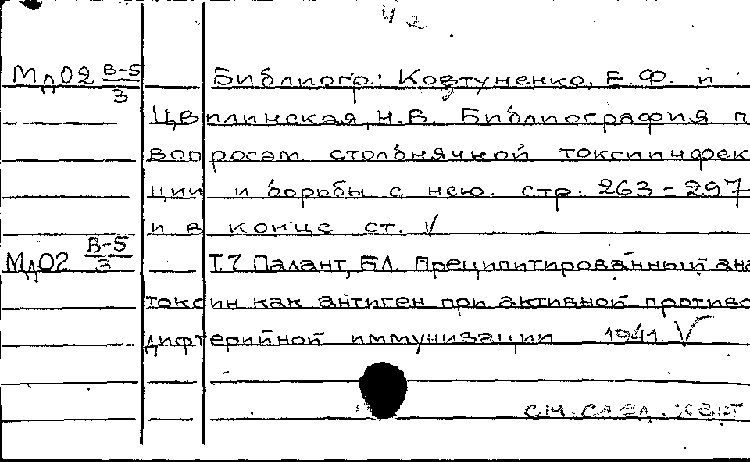 Ч 2
МД02 В-5/3 Библиогр.: Ковтуненко, Е.Ф. и
Цвилинская, Н.В. Библиография п
вопросам столбнячной токсиинфек
ции и борьбы с нею. стр. 263-297
и в конце ст. V
МД02 В-5/3 Т.7 Палант, Б.Л. Преципитированный ана
токсин как антиген при активной противо
дифтерийной иммунизации 1941 V
см. след. карт